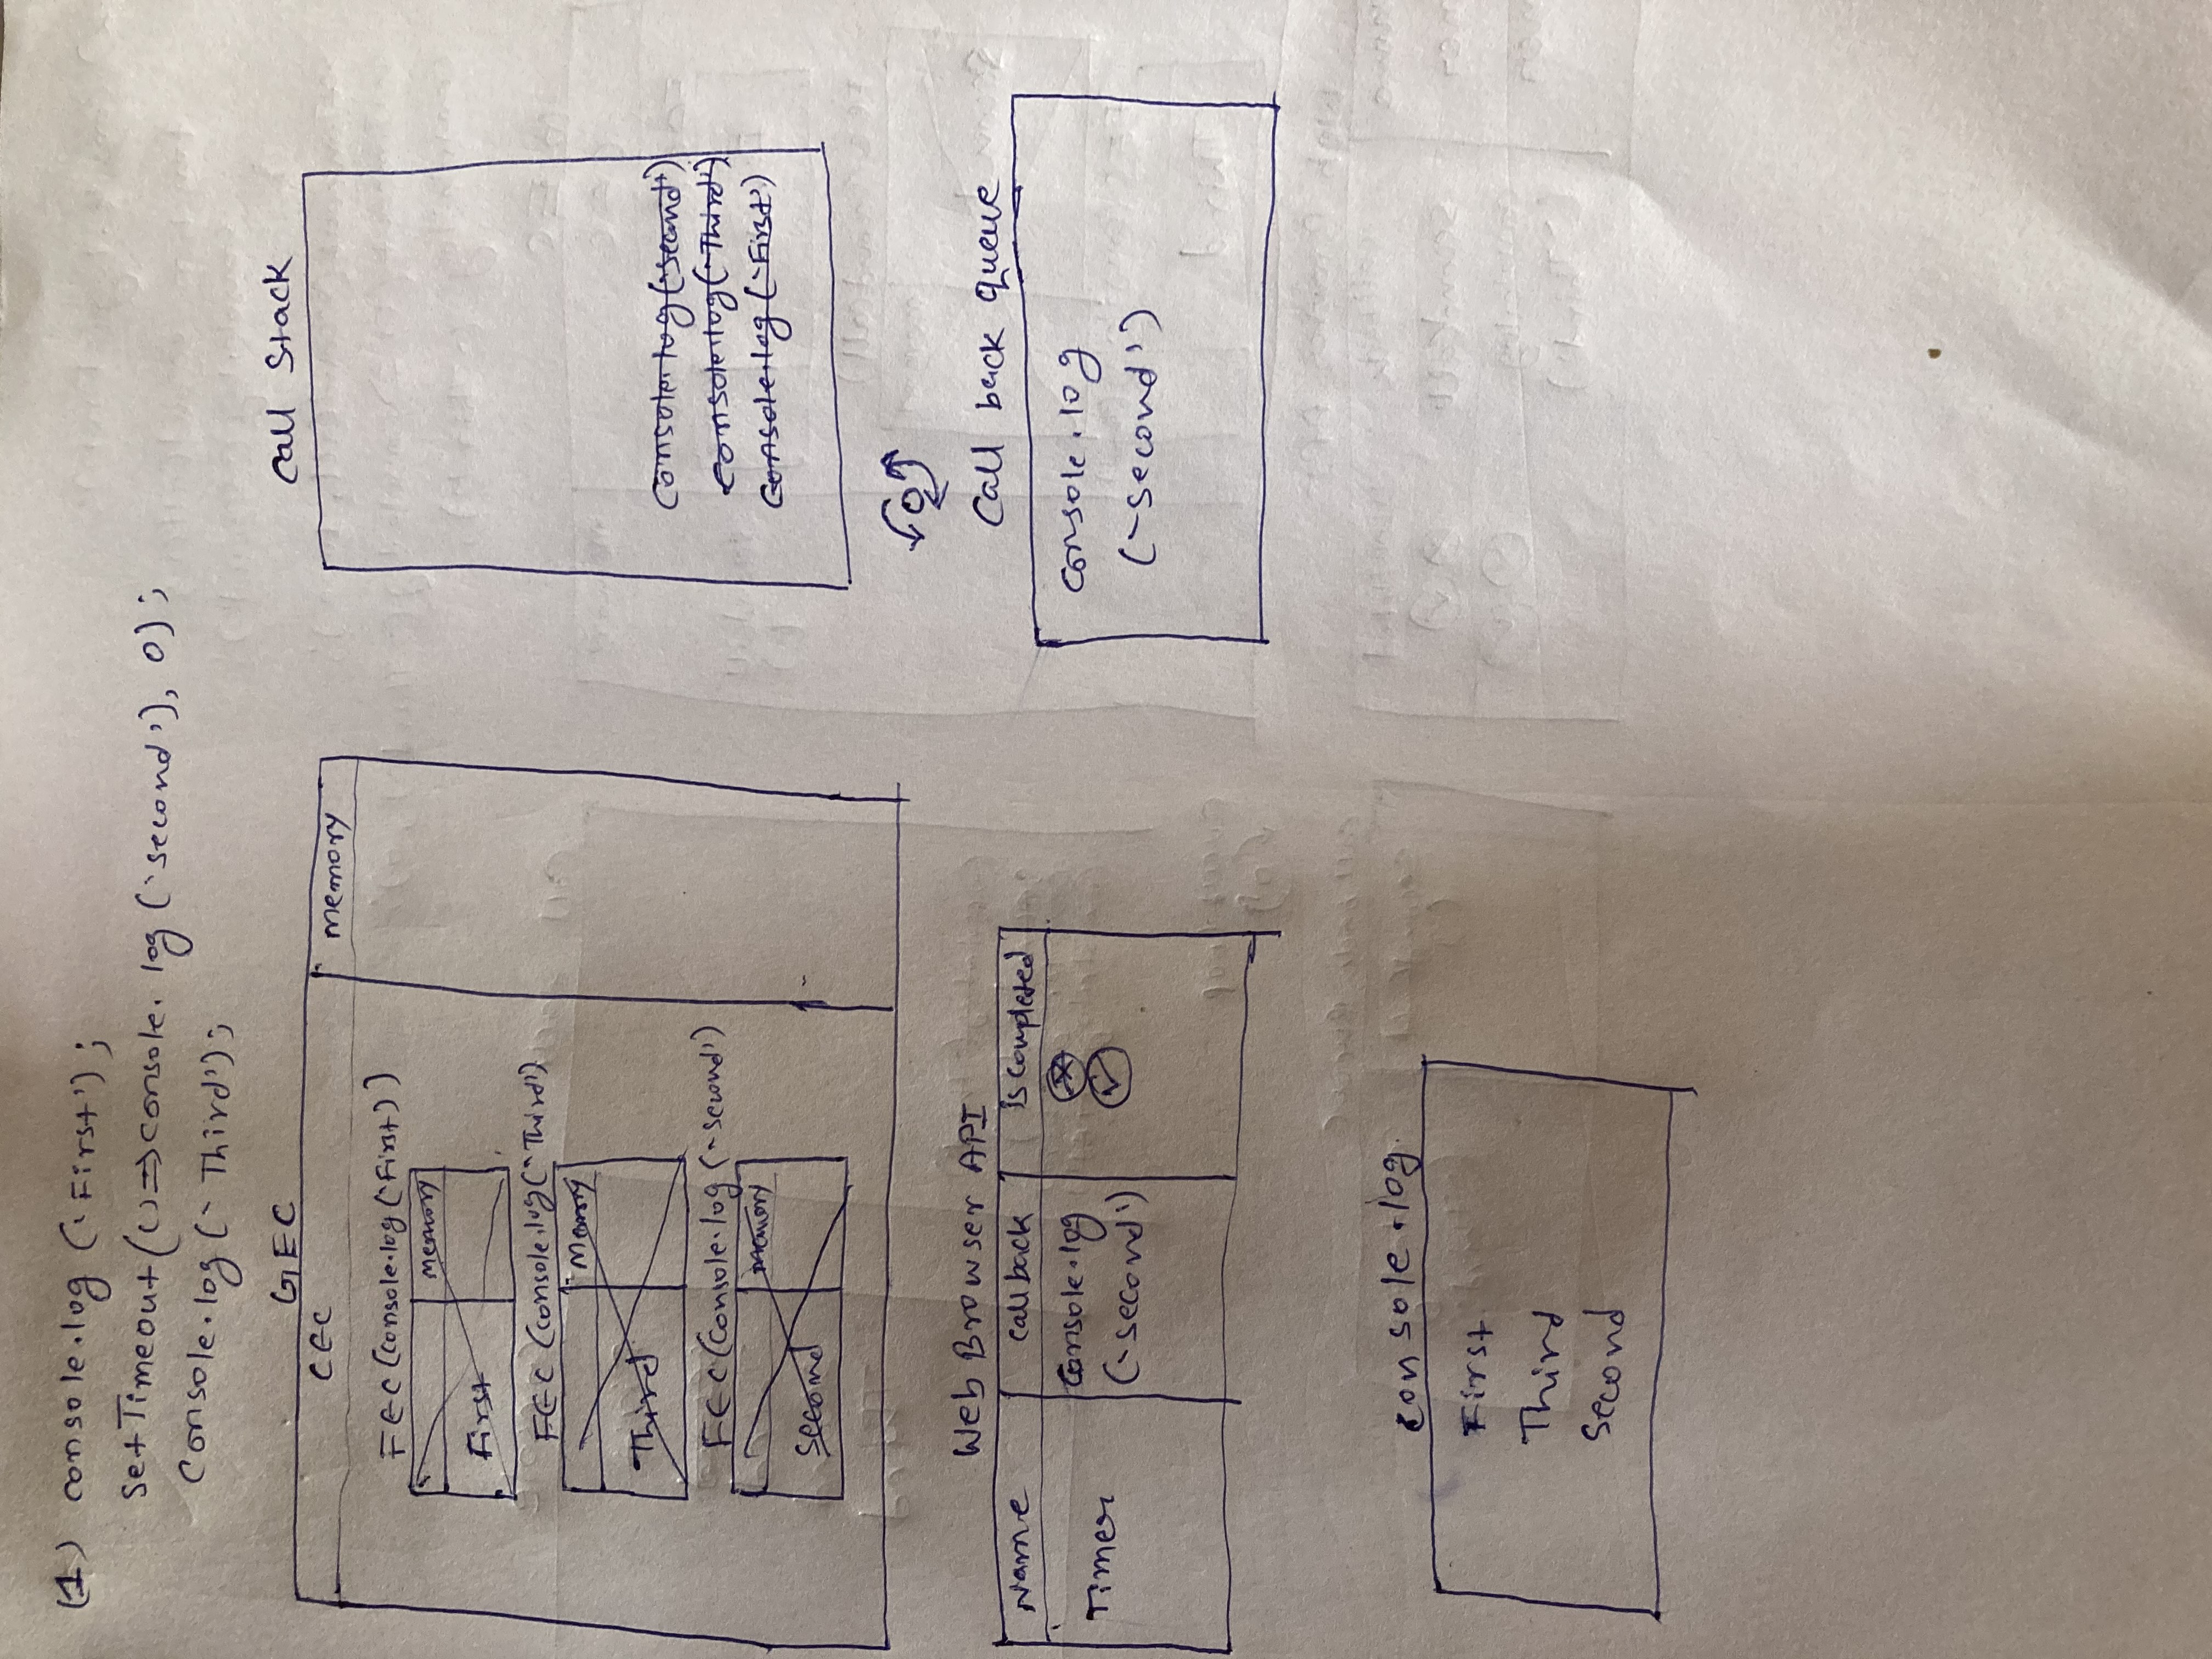 (1) console.log ('First');
setTimeout(()=>console.log('second'), 0);
Console.log('Third');
GEC
CEC
memory
FEC (console.log('First))
memory
First
FEC (console.log('Third')
Memory
Third
FEC (Console.log('second')
memory
second
Call Stack
console.log('second')
console.log('Third')
Console.log('First')
Web Browser API
Name callback is completed
Timer Console.log
('second')
Call back queue
console.log
('second')
console.log
First
Third
Second